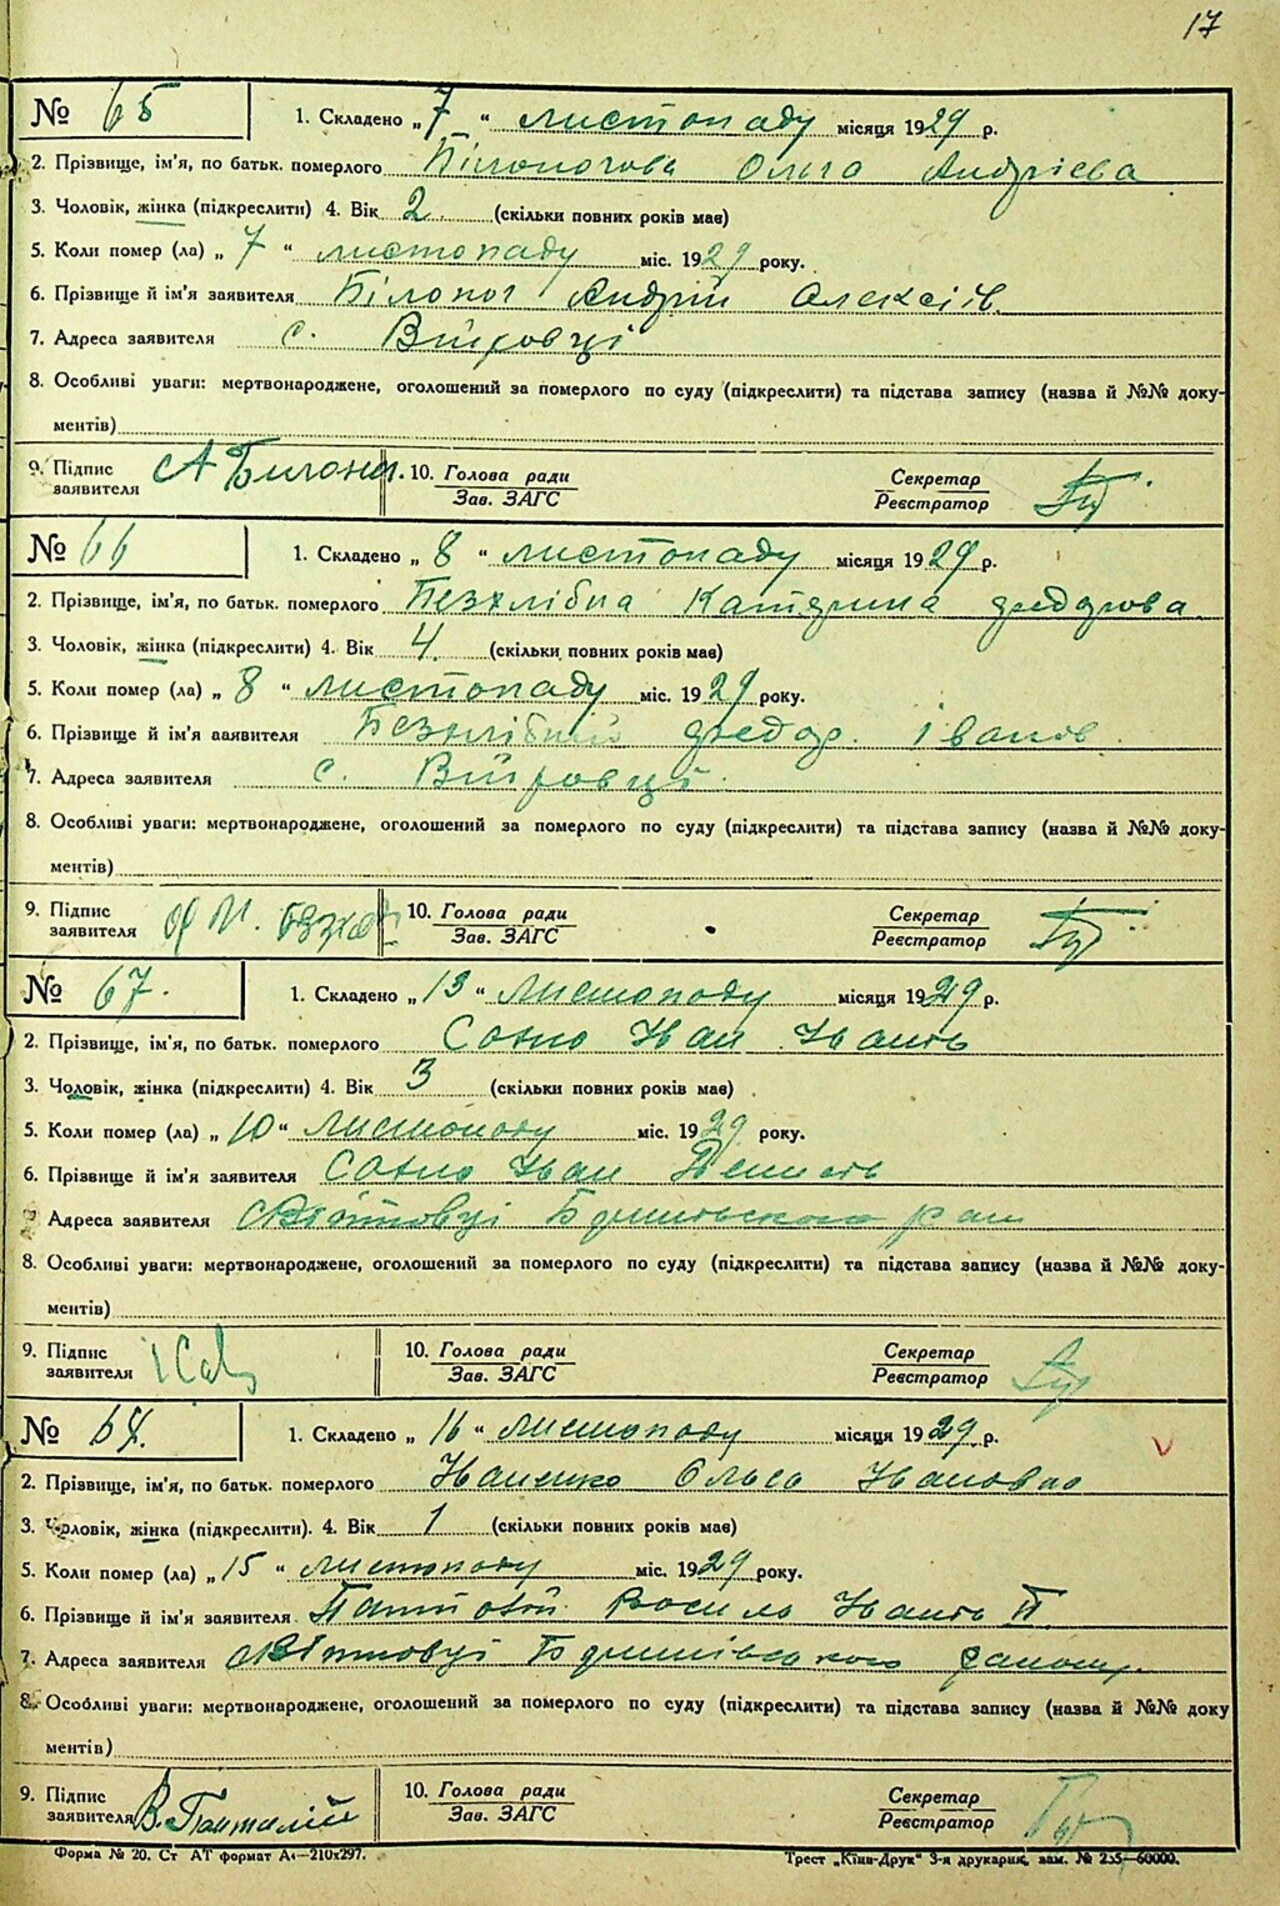 17
№ 65 1. Складено „7" листопаду місяця 1929 р.
2. Прізвище, ім'я, по батьк. померлого Ольга Андрієва
3. Чоловік, жінка (підкреслити) 4. Вік 2 (скільки повних років має)
5. Коли помер (ла) „7" листопаду міс. 1929 року.
6. Прізвище й ім'я заявителя Білоног Андрій Олексіїв.
7. Адреса заявителя с.
8. Особливі уваги: мертвонароджене, оголошений за померлого по суду (підкреслити) та підстава запису (назва й №№ доку-
ментів)
9. Підпис заявителя А 10. Голова ради Секретар
Зав. ЗАГС Реєстратор
№ 66 1. Складено „8" листопаду місяця 1929 р.
2. Прізвище, ім'я, по батьк. померлого Безхлібна Катерина Федорова
3. Чоловік, жінка (підкреслити) 4. Вік 4. (скільки повних років має)
5. Коли помер (ла) „8" листопаду міс. 1929 року.
6. Прізвище й ім'я заявителя Безхлібний Федор. Іванов
7. Адреса заявителя с.
8. Особливі уваги: мертвонароджене, оголошений за померлого по суду (підкреслити) та підстава запису (назва й №№ доку-
ментів)
9. Підпис заявителя 10. Голова ради Секретар
Зав. ЗАГС Реєстратор
№ 67. 1. Складено „13" листопаду місяця 1929 р.
2. Прізвище, ім'я, по батьк. померлого Іван Іванів
3. Чоловік, жінка (підкреслити) 4. Вік 3 (скільки повних років має)
5. Коли помер (ла) „10" листопаду міс. 1929 року.
6. Прізвище й ім'я заявителя Іван
7. Адреса заявителя
8. Особливі уваги: мертвонароджене, оголошений за померлого по суду (підкреслити) та підстава запису (назва й №№ доку-
ментів)
9. Підпис заявителя 10. Голова ради Секретар
Зав. ЗАГС Реєстратор
№ 68. 1. Складено „16" листопаду місяця 1929 р.
2. Прізвище, ім'я, по батьк. померлого Іваненко Ольга Івановна
3. Чоловік, жінка (підкреслити). 4. Вік 1 (скільки повних років має)
5. Коли помер (ла) „15" листопаду міс. 1929 року.
6. Прізвище й ім'я заявителя Василь Іванів
7. Адреса заявителя
8. Особливі уваги: мертвонароджене, оголошений за померлого по суду (підкреслити) та підстава запису (назва й №№ доку
ментів)
9. Підпис заявителя В. Панталій 10. Голова ради Секретар
Зав. ЗАГС Реєстратор
Форма № 20. Ст АТ формат А4—210х297. Трест „Київ-Друк" 3-я друкарня, зам. № 255—60000.